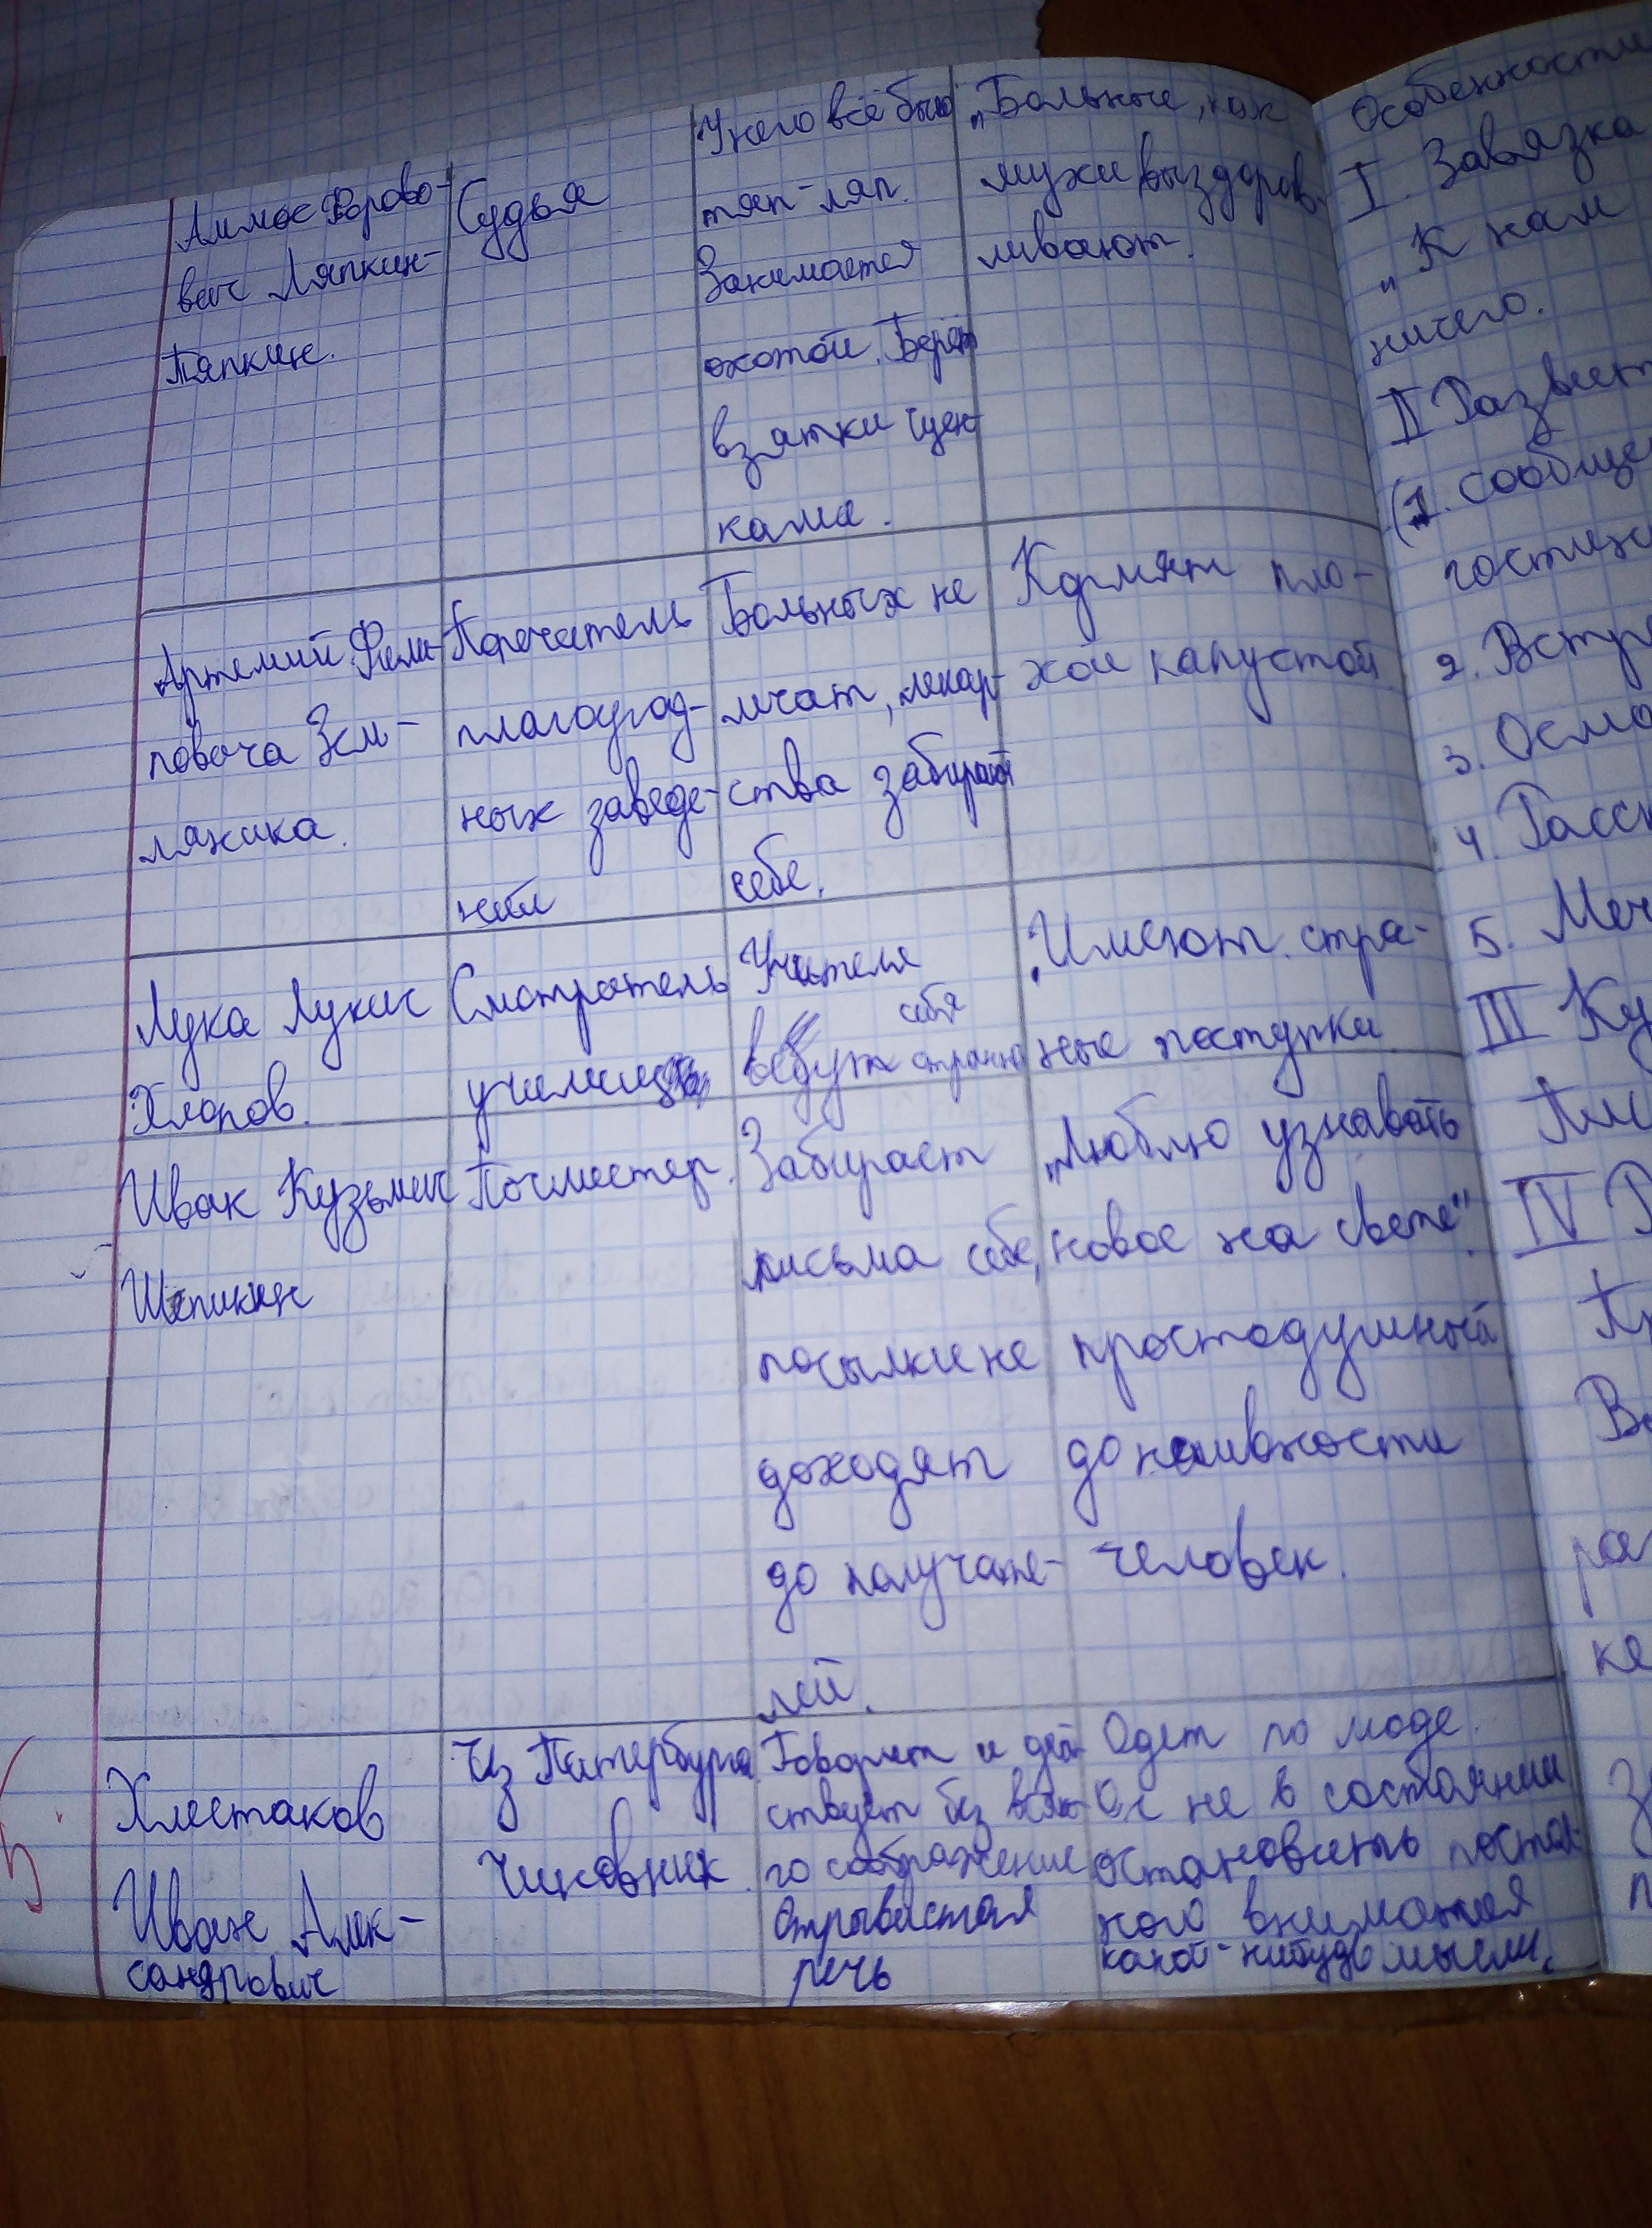 Аммос Фёрово-
вич Ляпкин-
Тяпкин.
Судья
У него всё было
тяп-ляп.
Занимается
охотой. Берёт
взятки щен-
ками.
„Больные, как
мухи выздорав-
ливают.
Артемий Фили-
повича Зем-
ляника.
Попечатель
плагоугод-
ных заведе-
ний
Больных не
лечат, лекар-
ства забирают
себе.
Кормят пло-
хой капустой.
Лука Лукич
Хлопов.
Смотратель
училища
Учителя
себя
ведут странно
„Имеют стра-
ные поступки.
Иван Кузьмич
Шпикин
Почместер.
Забирает
письма себе,
посылки не
доходят
до получате-
лей.
„Люблю узнавать
новое на свете".
простодушный
до наивности
человек.
Хлестаков
Иван Алек-
сандрович
Из Питербурга.
Чиновник.
Говорит и дей-
ствует без вся-
го соображение
Отрывистая
речь
Одет по моде.
Он не в состоянии
остановить постоян-
ного внимания
какой-нибудь мысли.
Особенности
I. Завязка
„К нам
ничего.
II Развит
(1. сообще
гостин
2. Встре
3. Осмо
4. Расск
5. Меч
III Ку
Пис
IV Р
Пр
Во
ра
ке
За
п
5